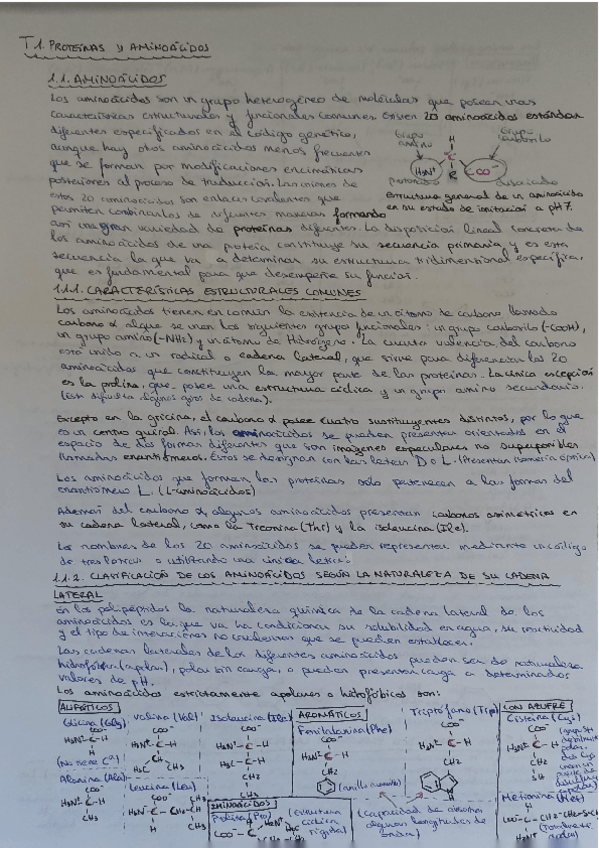 T1. PROTEÍNAS Y AMINOÁCIDOS
1.1. AMINOÁCIDOS
Los aminoácidos son un grupo heterogéneo de moléculas que poseen unas
características estructurales y funcionales comunes. Existen 20 aminoácidos estándar
diferentes especificados en el código genético,
aunque hay otros aminoácidos menos frecuentes
que se forman por modificaciones enzimáticas
posteriores al proceso de traducción. Las uniones de
estos 20 aminoácidos son enlaces covalentes que
permiten combinarlos de diferentes maneras formando
así una gran variedad de proteínas diferentes. La disposición lineal concreta de
los aminoácidos de una proteína constituye su secuencia primaria y es esta
secuencia la que va a determinar su estructura tridimensional específica,
que es fundamental para que desempeñe su función.
Grupo amino
Grupo carboxilo
H
H3N+ C COO-
R
protonado
disociado
Estructura general de un aminoácido
en su estado de ionización a pH 7.
1.1.1. CARACTERÍSTICAS ESTRUCTURALES COMUNES
Los aminoácidos tienen en común la existencia de un átomo de carbono llamado
carbono α al que se unen los siguientes grupo funcionales: un grupo carboxilo (-COOH),
un grupo amino (-NH2) y un átomo de Hidrógeno. La cuarta valencia del carbono
está unido a un radical o cadena lateral, que sirve para diferenciar los 20
aminoácidos que constituyen la mayor parte de las proteínas. La única excepción
es la prolina, que posee una estructura cíclica y un grupo amino secundario.
(Esto dificulta algunos giros de cadena).
Excepto en la glicina, el carbono α posee cuatro sustituyentes distintos, por lo que
es un centro quiral. Así, los aminoácidos se pueden presentar orientados en el
espacio de dos formas diferentes que son imágenes especulares no superponibles
llamadas enantiómeros. Éstos se designan con las letras D o L. (Presentan isomería óptica)
Los aminoácidos que forman las proteínas solo pertenecen a las formas del
enantiómero L. (L-aminoácidos)
Además del carbono α, algunos aminoácidos presentan carbonos asimétricos en
su cadena lateral, como la Treonina (Thr) y la isoleucina (Ile).
Los nombres de los 20 aminoácidos se pueden representar mediante un código
de tres letras o utilizando una única letra.
1.1.2. CLASIFICACIÓN DE LOS AMINOÁCIDOS SEGÚN LA NATURALEZA DE SU CADENA
LATERAL
En los polipéptidos la naturaleza química de la cadena lateral de los
aminoácidos es la que va ha condicionar su solubilidad en agua, su reactividad
y el tipo de interacciones no covalentes que se pueden establecer.
Las cadenas laterales de los diferentes aminoácidos pueden ser de naturaleza
hidrófoba (apolar), polar sin carga, o pueden presentar carga a determinados
valores de pH.
Los aminoácidos estrictamente apolares o hidrofóbicos son:
ALIFÁTICOS
Glicina (Gly)
Valina (Val)
Isoleucina (Ile)
(No tiene C*)
Alanina (Ala)
Leucina (Leu)
AROMÁTICOS
Fenilalanina (Phe)
Triptófano (Trp)
(anillo aromático)
(capacidad de absorber
algunas longitudes de
onda)
IMINOÁCIDOS
Prolina (Pro)
(estructura
cíclica
rígida)
CON AZUFRE
Cisteína (Cys)
Metionina (Met)